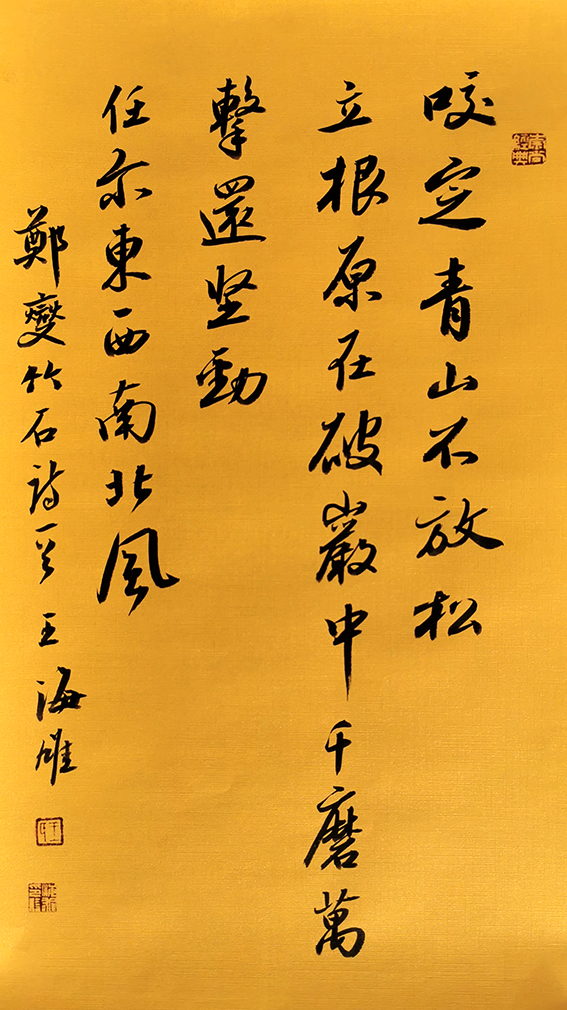 咬定青山不放松
立根原在破巖中千磨萬
擊還坚勁
任尔東西南北風
鄭燮竹石詩一首 王海雄